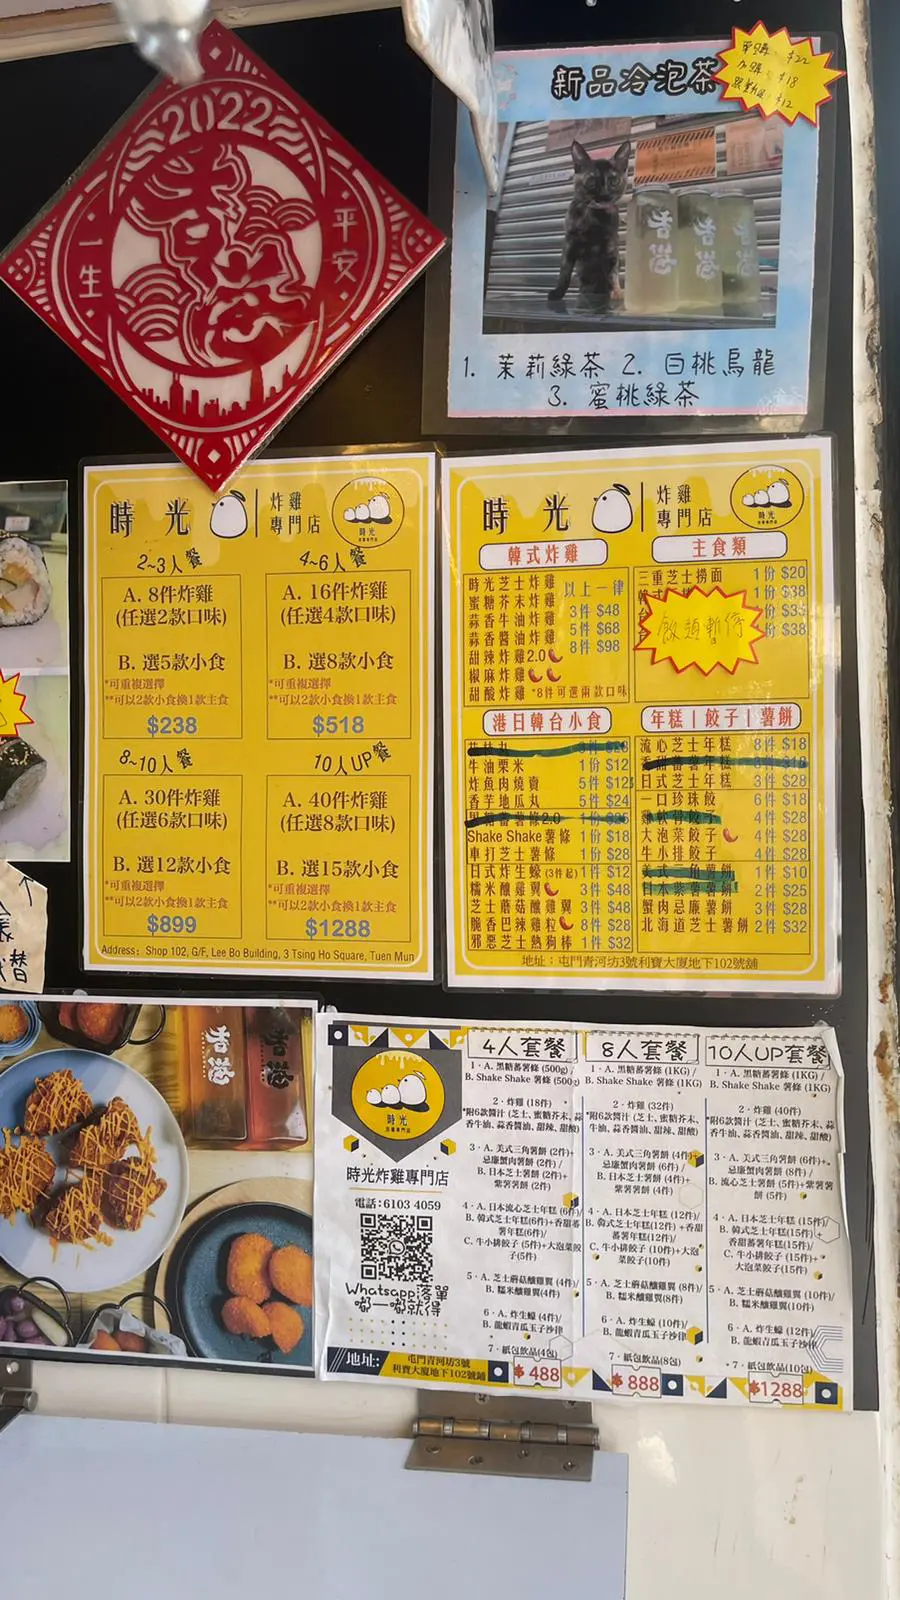 2022
香港
一生
平安
新品冷泡茶
單購 $22
加購 $18
$12
香港
香港
香港
1. 茉莉綠茶 2. 白桃烏龍
3. 蜜桃綠茶
時光
炸雞
專門店
時光
2~3人餐
A. 8件炸雞
(任選2款口味)
B. 選5款小食
*可重複選擇
**可以2款小食換1款主食
$238
4~6人餐
A. 16件炸雞
(任選4款口味)
B. 選8款小食
*可重複選擇
**可以2款小食換1款主食
$518
8~10人餐
A. 30件炸雞
(任選6款口味)
B. 選12款小食
*可重複選擇
**可以2款小食換1款主食
$899
10人UP餐
A. 40件炸雞
(任選8款口味)
B. 選15款小食
*可重複選擇
**可以2款小食換1款主食
$1288
Address: Shop 102, G/F, Lee Bo Building, 3 Tsing Ho Square, Tuen Mun
時光
炸雞
專門店
時光
韓式炸雞
時光芝士炸雞
蜜糖芥末炸雞
蒜香牛油炸雞
蒜香醬油炸雞
甜辣炸雞2.0
椒麻炸雞
甜酸炸雞 *8件可選兩款口味
以上一律
3件 $48
5件 $68
8件 $98
主食類
三重芝士撈面 1份 $20
1份 $38
1份 $35
1份 $38
飯類暫停
港日韓台小食
3件 $28
牛油栗米 1份 $12
炸魚肉燒賣 5件 $12
香芋地瓜丸 5件 $24
黑糖蕃薯條2.0 1份 $25
Shake Shake薯條 1份 $18
車打芝士薯條 1份 $28
日式炸生蠔 (3件起) 1件 $12
糯米釀雞翼 3件 $48
芝士蘑菇釀雞翼 3件 $48
脆香巴辣雞粒 8件 $28
邪惡芝士熱狗棒 1件 $32
年糕 | 餃子 | 薯餅
流心芝士年糕 8件 $18
香甜蕃薯年糕
日式芝士年糕 3件 $28
一口珍珠餃 6件 $18
雞軟骨餃子 4件 $28
大泡菜餃子 4件 $28
牛小排餃子 4件 $28
美式三角薯餅 1件 $10
日本紫薯薯餅 2件 $25
蟹肉忌廉薯餅 3件 $28
北海道芝士薯餅 2件 $32
地址：屯門青河坊3號利寶大廈地下102號舖
香港
香港
時光
時光炸雞專門店
電話:6103 4059
Whatsapp落單
嘟一嘟就得
地址:
屯門青河坊3號
利寶大廈地下102號舖
4人套餐
1・A. 黑糖蕃薯條 (500g) /
B. Shake Shake 薯條 (500g)
2・炸雞 (18件)
*附6款醬汁 (芝士、蜜糖芥末、蒜
香牛油、蒜香醬油、甜辣、甜酸)
3・A. 美式三角薯餅 (2件)+
忌廉蟹肉薯餅 (2件) /
B. 日本芝士薯餅 (2件)+
紫薯薯餅 (2件)
4・A. 日本流心芝士年糕 (6件)/
B. 韓式芝士年糕(6件)+香甜蕃
薯年糕(6件)/
C. 牛小排餃子 (5件)+大泡菜餃
子(5件)
5・A. 芝士蘑菇釀雞翼 (4件)/
B. 糯米釀雞翼(4件)
6・A. 炸生蠔 (4件)/
B. 龍蝦青瓜玉子沙律
7・紙包飲品(4包)
$ 488
8人套餐
1・A. 黑糖蕃薯條 (1KG) /
B. Shake Shake 薯條 (1KG)
2・炸雞 (32件)
*附6款醬汁 (芝士、蜜糖芥末、蒜香
牛油、蒜香醬油、甜辣、甜酸)
3・A. 美式三角薯餅 (4件)+
忌廉蟹肉薯餅 (6件) /
B. 日本芝士薯餅 (4件)+
紫薯薯餅 (4件)
4・A. 日本芝士年糕 (12件)/
B. 韓式芝士年糕(12件) +香甜
蕃薯年糕(12件)/
C. 牛小排餃子 (10件)+大泡
菜餃子(10件)
5・A. 芝士蘑菇釀雞翼 (8件)/
B. 糯米釀雞翼(8件)
6・A. 炸生蠔 (10件)/
B. 龍蝦青瓜玉子沙律
7・紙包飲品(8包)
$ 888
10人UP套餐
1・A. 黑糖蕃薯條 (1KG) /
B. Shake Shake 薯條 (1KG)
2・炸雞 (40件)
*附6款醬汁 (芝士、蜜糖芥末、蒜
香牛油、蒜香醬油、甜辣、甜酸)
3・A. 美式三角薯餅 (6件)+
忌廉蟹肉薯餅 (8件) /
B. 流心芝士薯餅 (5件)+紫薯薯
餅 (5件)
4・A. 日本芝士年糕 (15件)/
B. 韓式芝士年糕 (15件)+
香甜蕃薯年糕(15件)/
C. 牛小排餃子 (15件)+
大泡菜餃子(15件)
5・A. 芝士蘑菇釀雞翼 (10件)/
B. 糯米釀雞翼(10件)
6・A. 炸生蠔 (12件)/
B. 龍蝦青瓜玉子沙律
7・紙包飲品(10包)
$1288